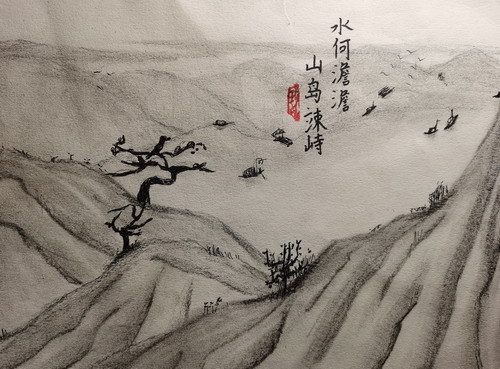 水何澹澹
山岛竦峙